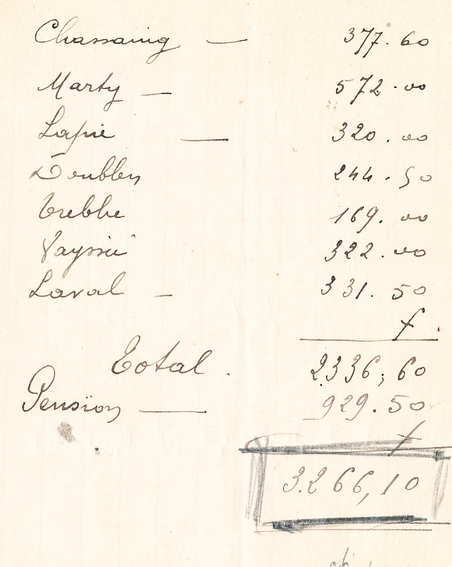 Chassaing — 377.60
Marty — 572.00
Lapie — 320.00
244.50
169.00
Vayssié 322.00
Laval — 331.50
Total. 2336,60
Pension — 929.50
3.266,10